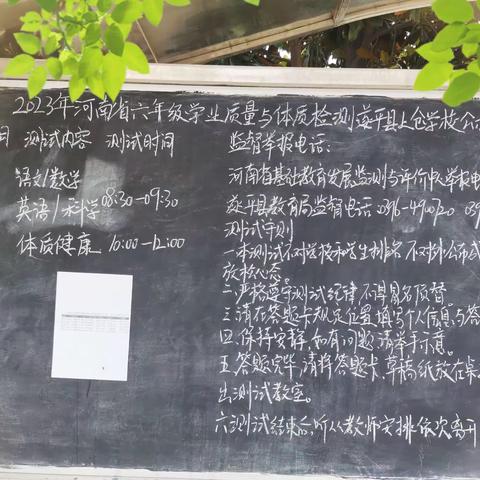 2023年河南省六年级学生质量与体质检测遂平县上仓学校公
测试内容 测试时间
语文/数学
英语/科学 08:30-09:30
体质健康 10:00-12:00
监督举报电话:
河南省基础教育发展监测与评价中心举报电
遂平县教育局监督电话:0396-4900720 039
测试守则
一.本测试不对学校和学生排名,不对外公布成
放松心态。
二.严格遵守测试纪律,不得冒名顶替。
三.请在答题卡规定位置填写个人信息与答
四.保持安静,如有问题,请举手示意。
五.答题完毕,请将答题卡、草稿纸放在桌
出测试教室。
六.测试结束后,听从教师安排依次离开